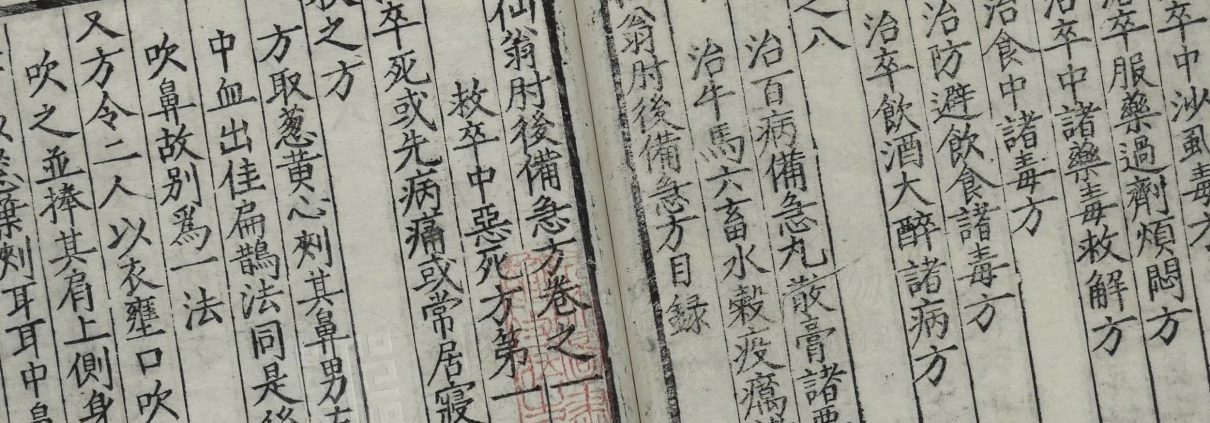 卒中沙虱毒方
卒服藥過劑煩悶方
治卒中諸藥毒救解方
治食中諸毒方
治防避飲食諸毒方
治卒飲酒大醉諸病方
之八
治百病備急丸散膏諸要
治牛馬六畜水穀疫癘
翁肘後備急方目録
仙翁肘後備急方卷之一
救卒中惡死方第一
卒死或先病痛或常居寢
之方
方取葱黄心刾其鼻男左
中血出佳扁鵲法同是後
吹鼻故别爲一法
又方令二人以衣壅口吹
吹之並捧其肩上側身
葱葉刾耳耳中鼻